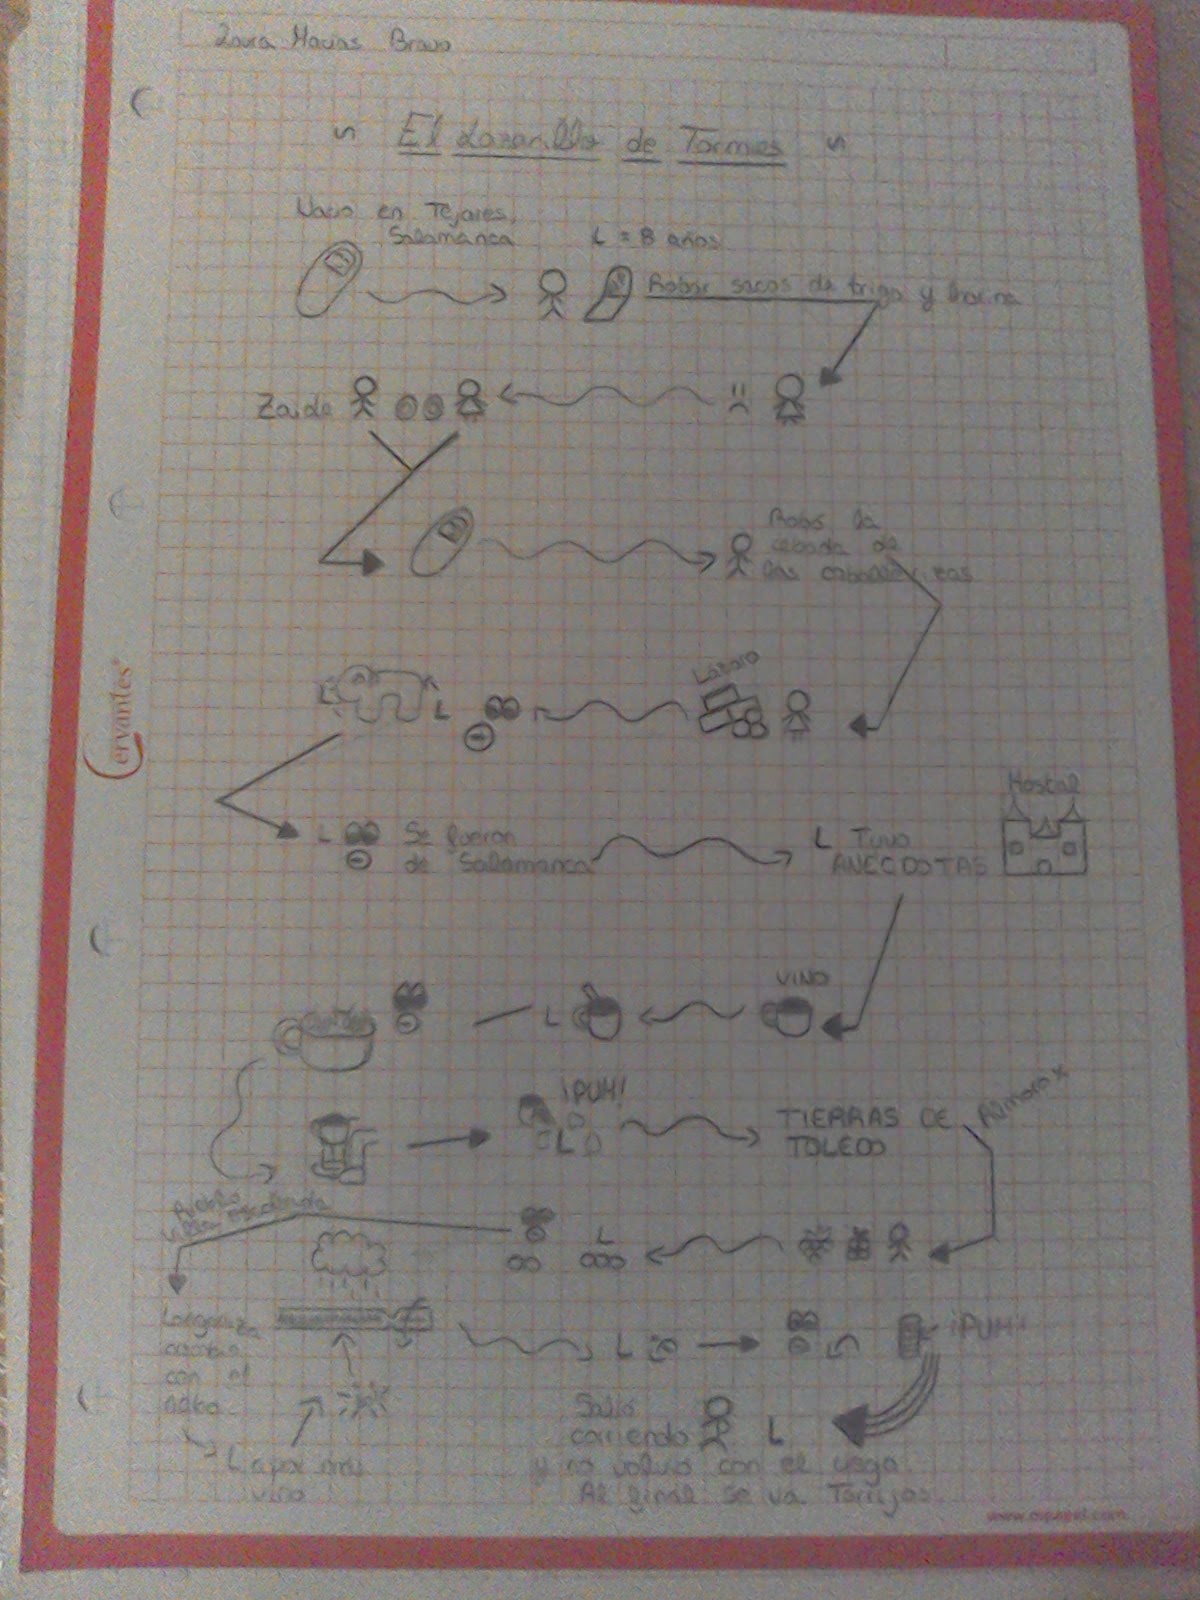 Laura Macías Bravo
El Lazarillo de Tormes
Nació en Tejares,
Salamanca
L = 8 años
Robar sacos de trigo y harina
Zaide
Robó la
cebada de
las caballerizas
Lázaro
L
L
L Se fueron
de Salamanca
L Tuvo
ANECDOTAS
Hostal
VINO
L
¡PUM!
L
TIERRAS DE
TOLEDO
Almorox
Pueblo
L
Longaniza
cambia
con el
nabo
L a por más
vino
L
¡PUM!
Salió
corriendo L
y no volvió con el ciego.
Al final se va Torrijos.
Cervantes